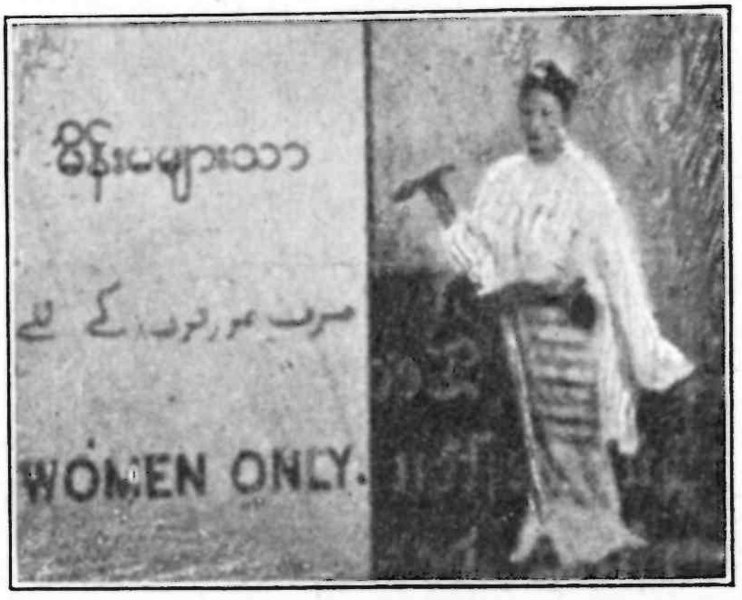 မိန်းမများသာ
صرف عورتوں کے لئے
WOMEN ONLY.